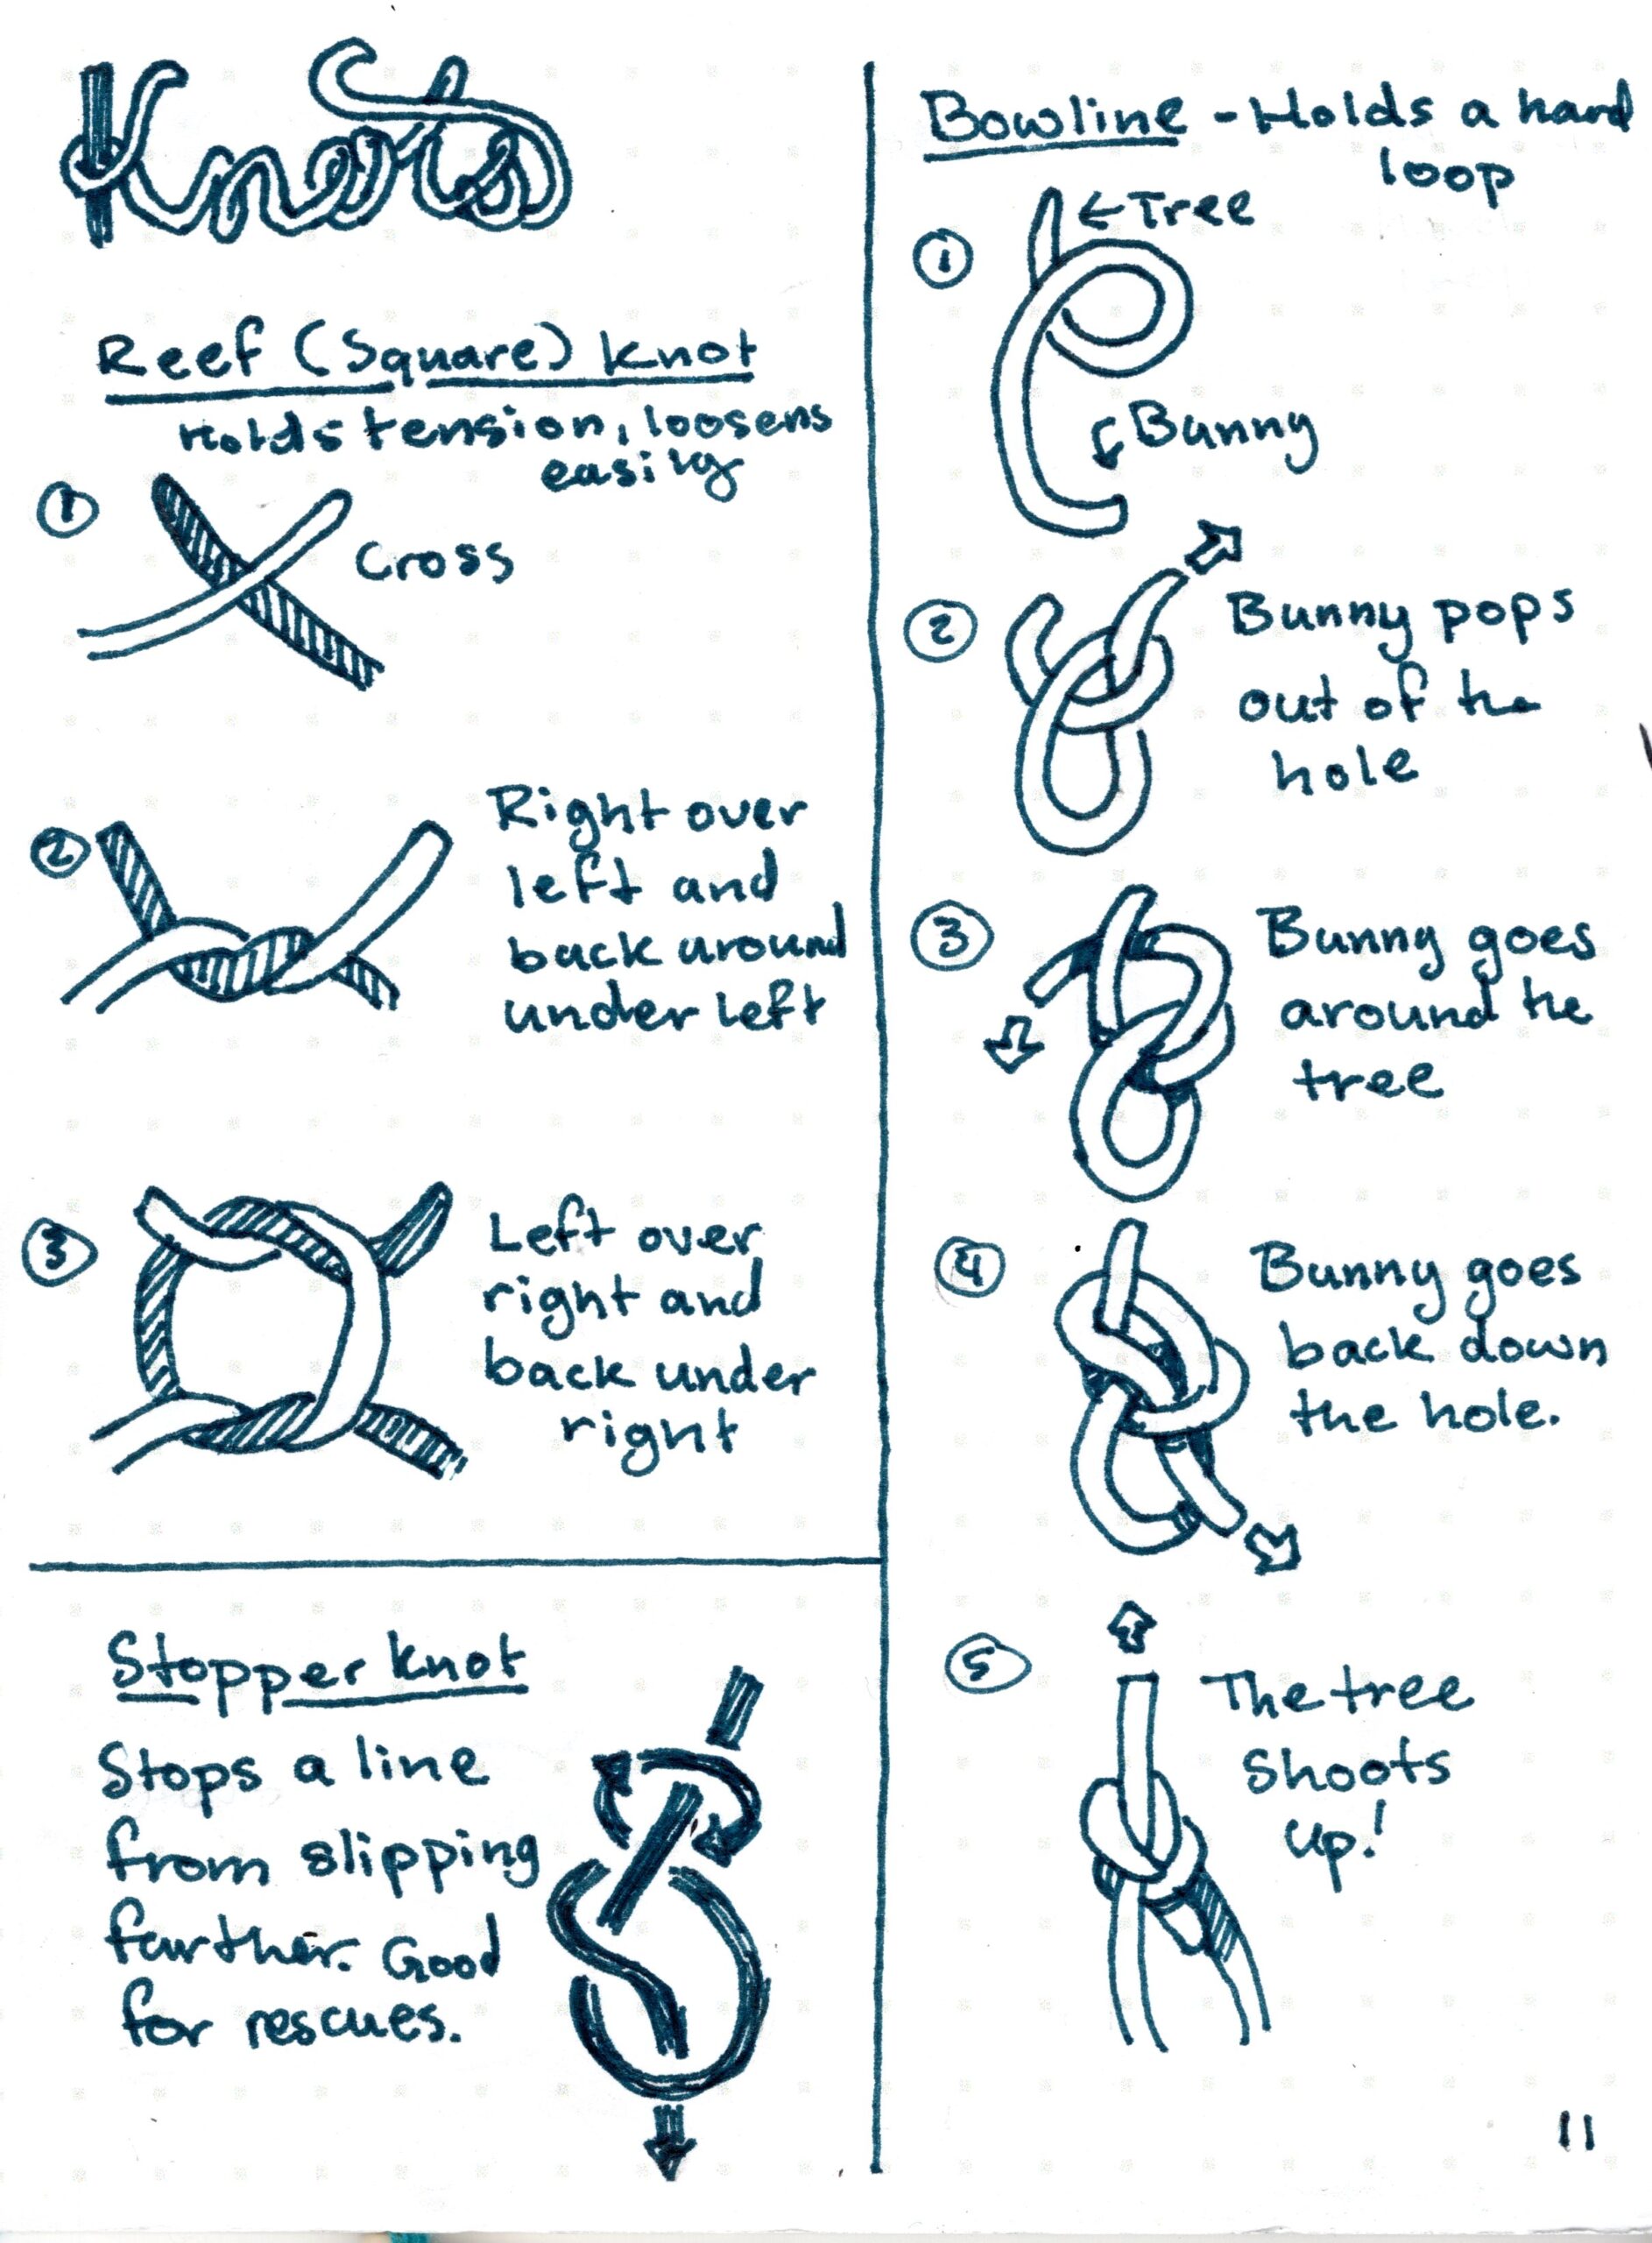 Knots
Reef (Square) Knot
Holds tension, loosens
easily
1
Cross
2
Right over
left and
back around
under left
3
Left over
right and
back under
right
Stopper Knot
Stops a line
from slipping
farther. Good
for rescues.
Bowline - Holds a hard
loop
1
←Tree
Bunny
2
Bunny pops
out of the
hole
3
Bunny goes
around the
tree
4
Bunny goes
back down
the hole.
5
The tree
shoots
up!
11